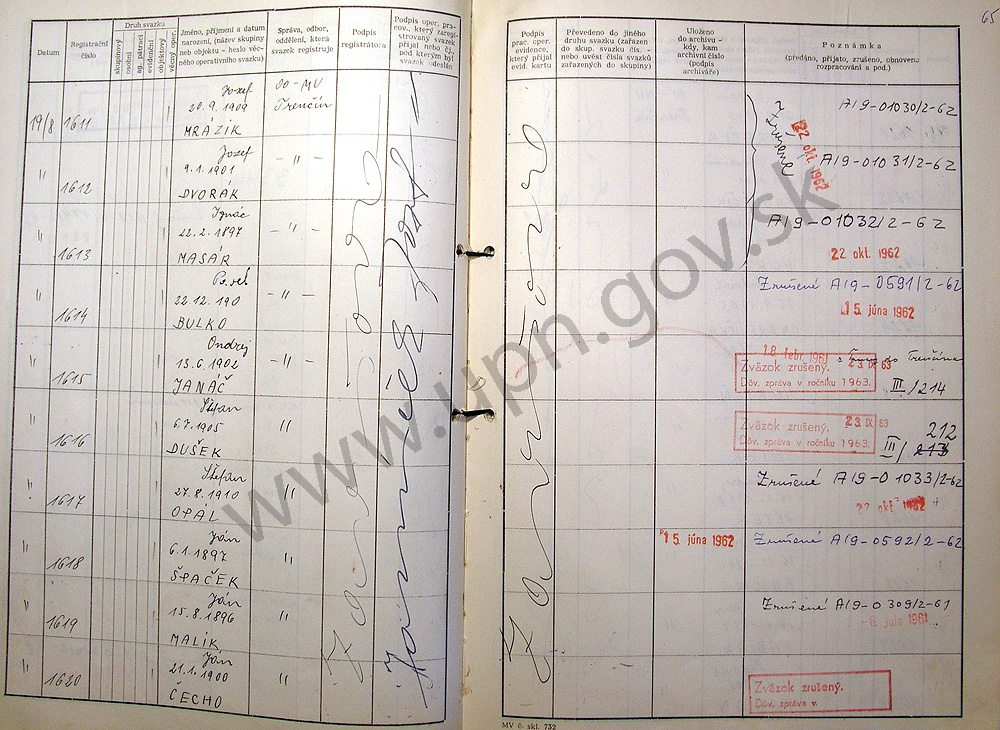 65
Datum
Registrační číslo
Druh svazku
skupinový
osobní
ag. pátrací
evidenční
objektový
věcný oper.
Jméno, příjmení a datum
narození, (název skupiny
neb objektu - heslo věc-
ného operativního svazku)
Správa, odbor,
oddělení, která
svazek registruje
Podpis
registrátora:
Podpis oper. pra-
cov., který zareg-
istrovaný svazek
přijal nebo čj.
pod kterým byl
svazek odeslán
19/8
1611
Jozef
20.9.1909
MRÁZIK
OO-MV
Trenčín
"
1612
Jozef
9.1.1901
DVORÁK
- " -
"
1613
Ignác
22.2.1897
MASÁR
- " -
"
1614
22.12.190
BULKO
- " -
"
1615
Ondrej
13.6.1902
JANÁČ
- " -
"
1616
Štefan
6.7.1905
DUŠEK
"
"
1617
Štefan
27.8.1910
OPÁL
"
"
1618
Ján
6.1.1897
ŠPAČEK
"
"
1619
Ján
15.8.1896
MALÍK
"
"
1620
Ján
21.1.1900
ČECHO
"
Podpis
prac. oper.
evidence,
který přijal
evid. kartu
Převedeno do jiného
druhu svazku (zařazen
do skup. svazku čís. -
nebo uvést čísla svazků
zařazených do skupiny)
Uloženo
do archivu -
kdy, kam
archivní číslo
(podpis
archiváře)
Poznámka
(předáno, přijato, zrušeno, obnoveno
rozpracování a pod.)
zrušené
22 okt. 1962
A19-01030/2-62
A19-01031/2-62
A19-01032/2-62
22 okt. 1962
Zrušené A19-0591/2-62
15 júna 1962
18 febr. 1961
do Trenčína
23 IX 63
Zväzok zrušený.
Dôv. zpráva v ročníku 1963.
III/214
Zväzok zrušený.
23 IX 63
Dôv. zpráva v ročníku 1963.
212
III/213
Zrušené A19-01033/2-62
22 okt 1962
15 júna 1962
Zrušené A19-0592/2-62
Zrušené A19-0309/2-61
- 6. júla 1961
Zväzok zrušený.
Dôv. zpráva v.
MV č. skl. 732
www.upn.gov.sk